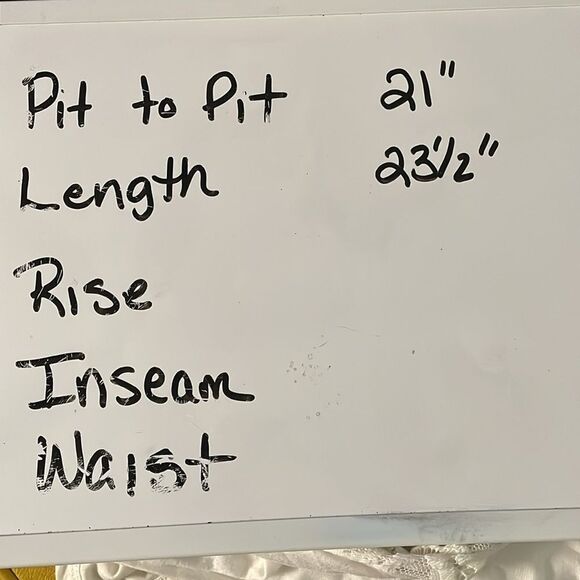 Pit to Pit 21"
Length 23 1/2"
Rise
Inseam
Waist